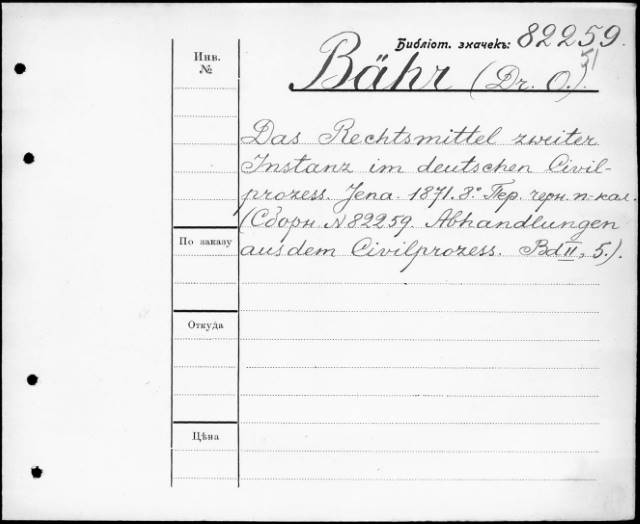 Библіот. значекъ: 82259.
51
Инв. №
Bähr (Dr. O.).
Das Rechtsmittel zweiter
Instanz im deutschen Civil-
prozess. Jena. 1871. 8° Пер. черн. п-кал.
(Сборн. № 82259. Abhandlungen
aus dem Civilprozess. Bd II, 5.).
По заказу
Откуда
Цѣна